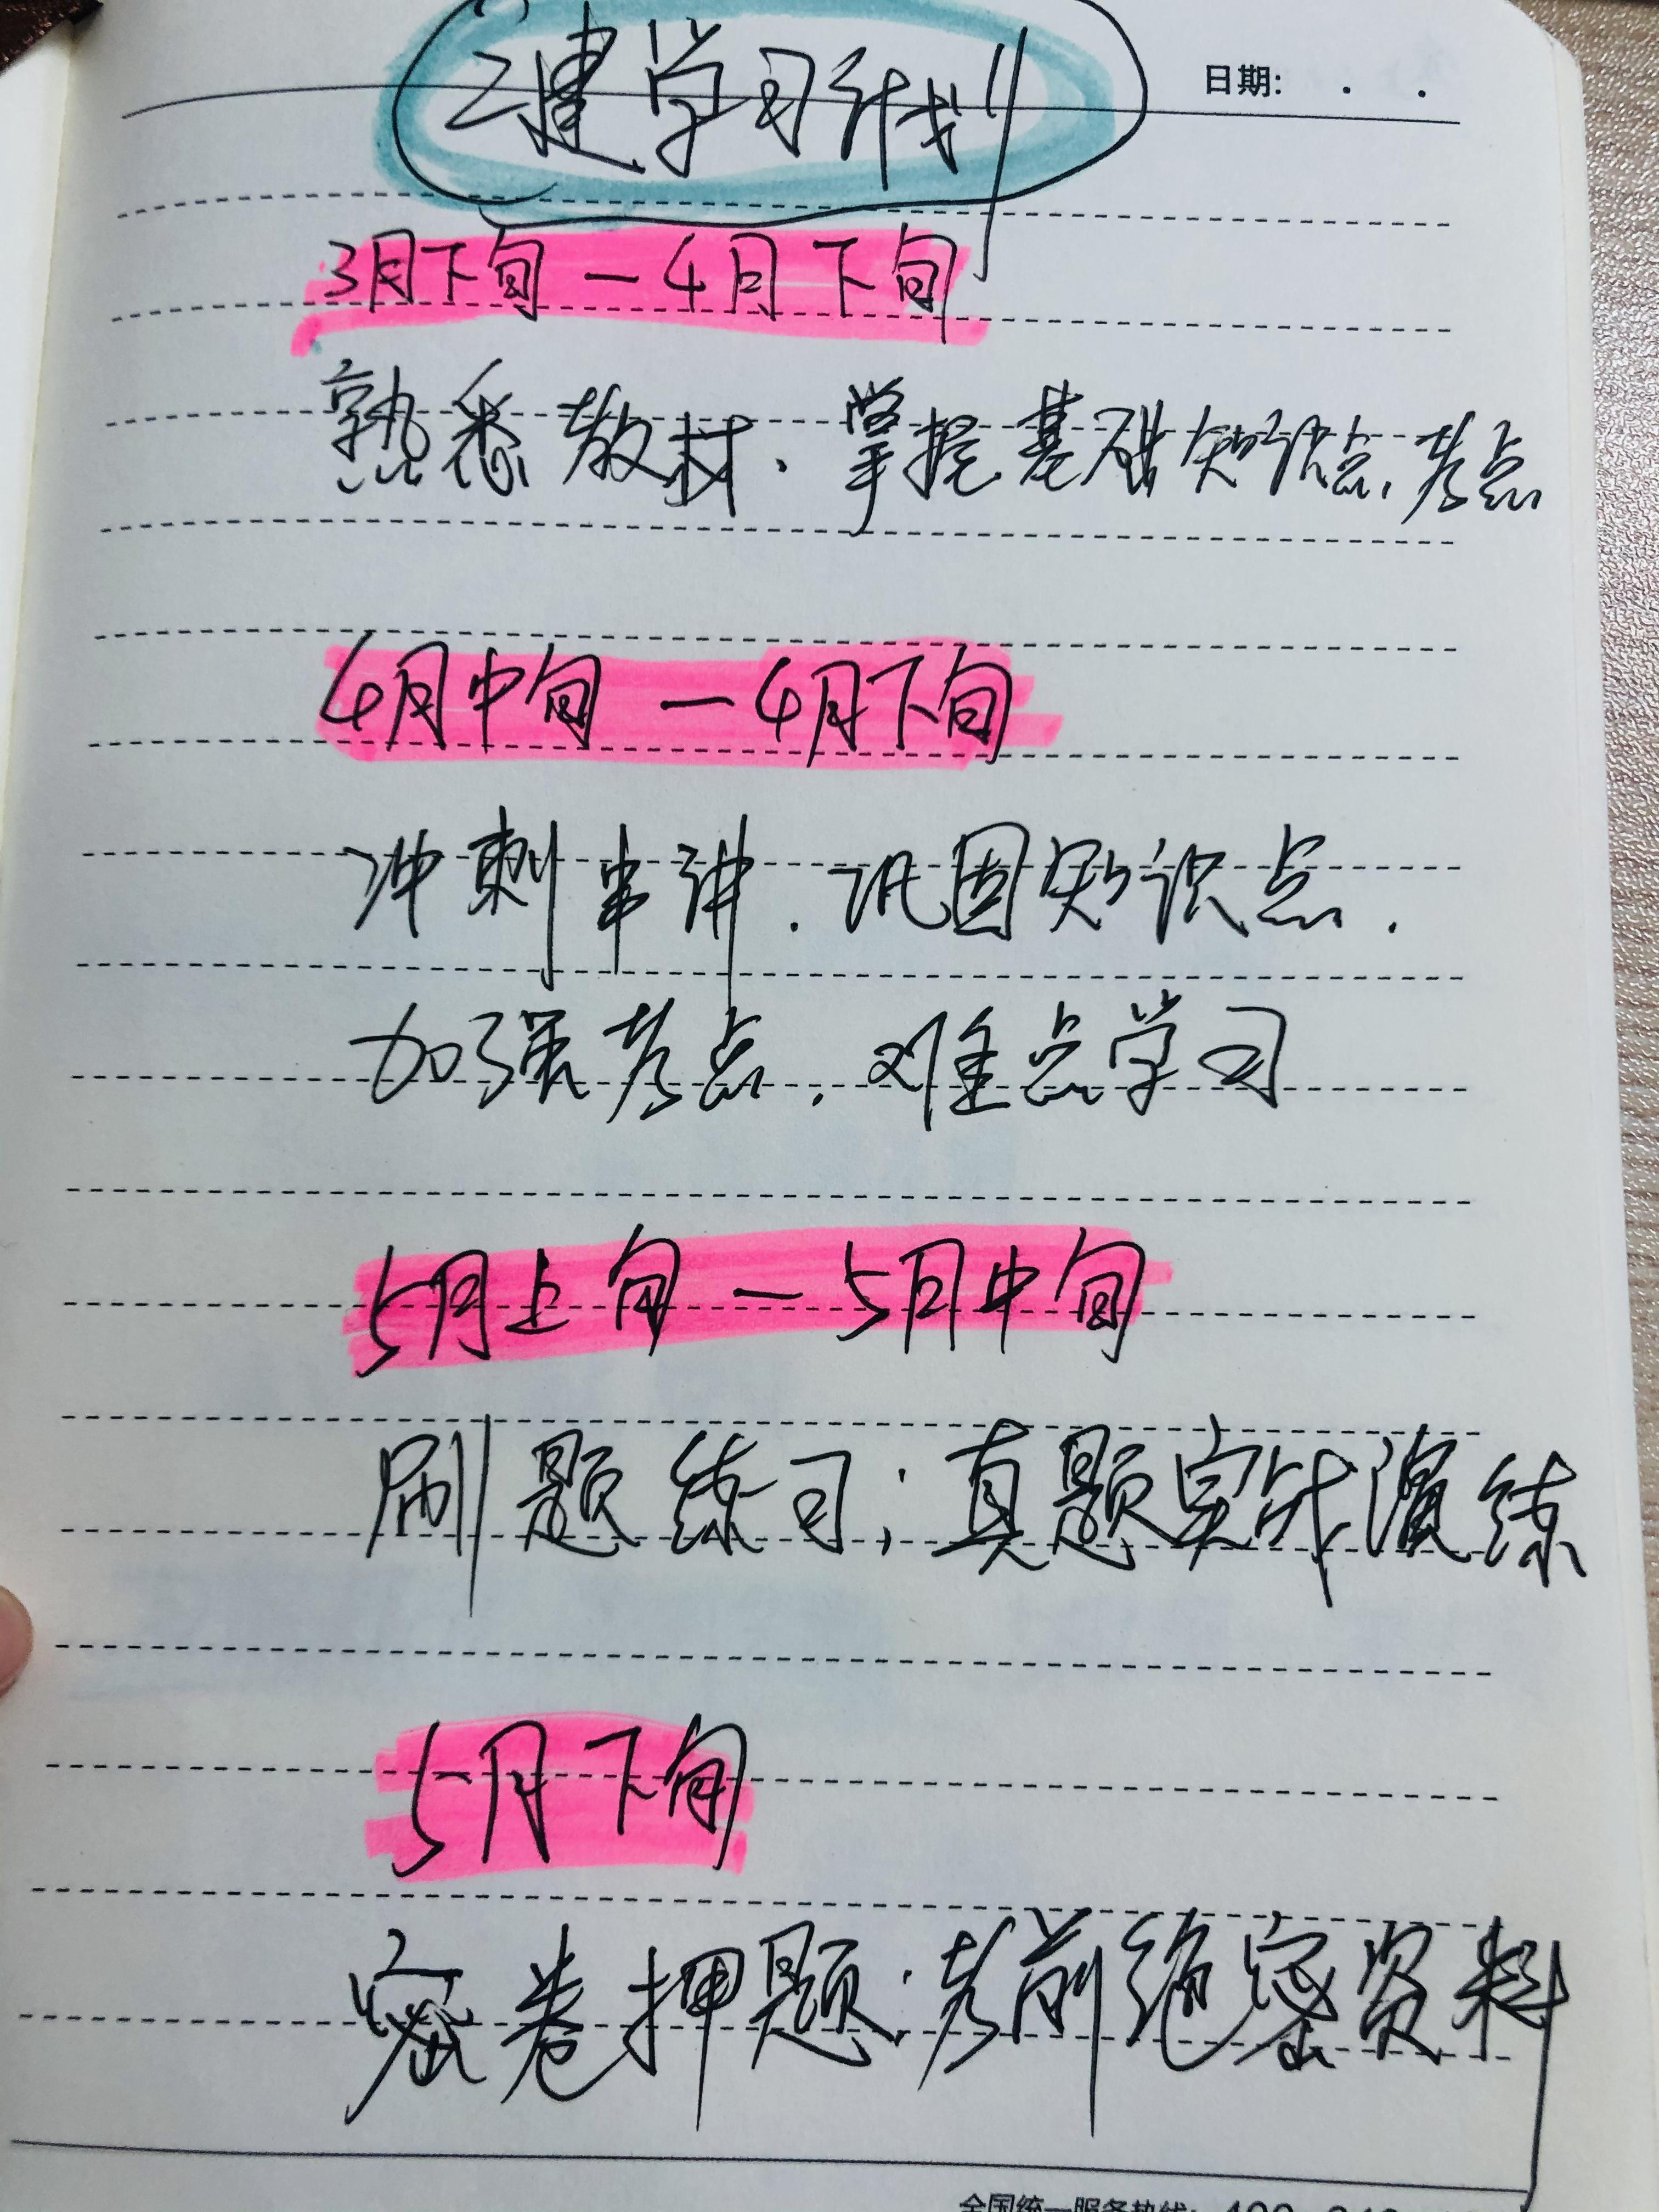 二建学习计划
日期: . .
3月下旬－4月下旬
熟悉教材、掌握基础知识点、考点
4月中旬－4月下旬
冲刺串讲.巩固知识点.
加强考点.难点学习
5月上旬－5月中旬
刷题练习;真题实战演练
5月下旬
密卷押题;考前绝密资料
全国统一服务热线: